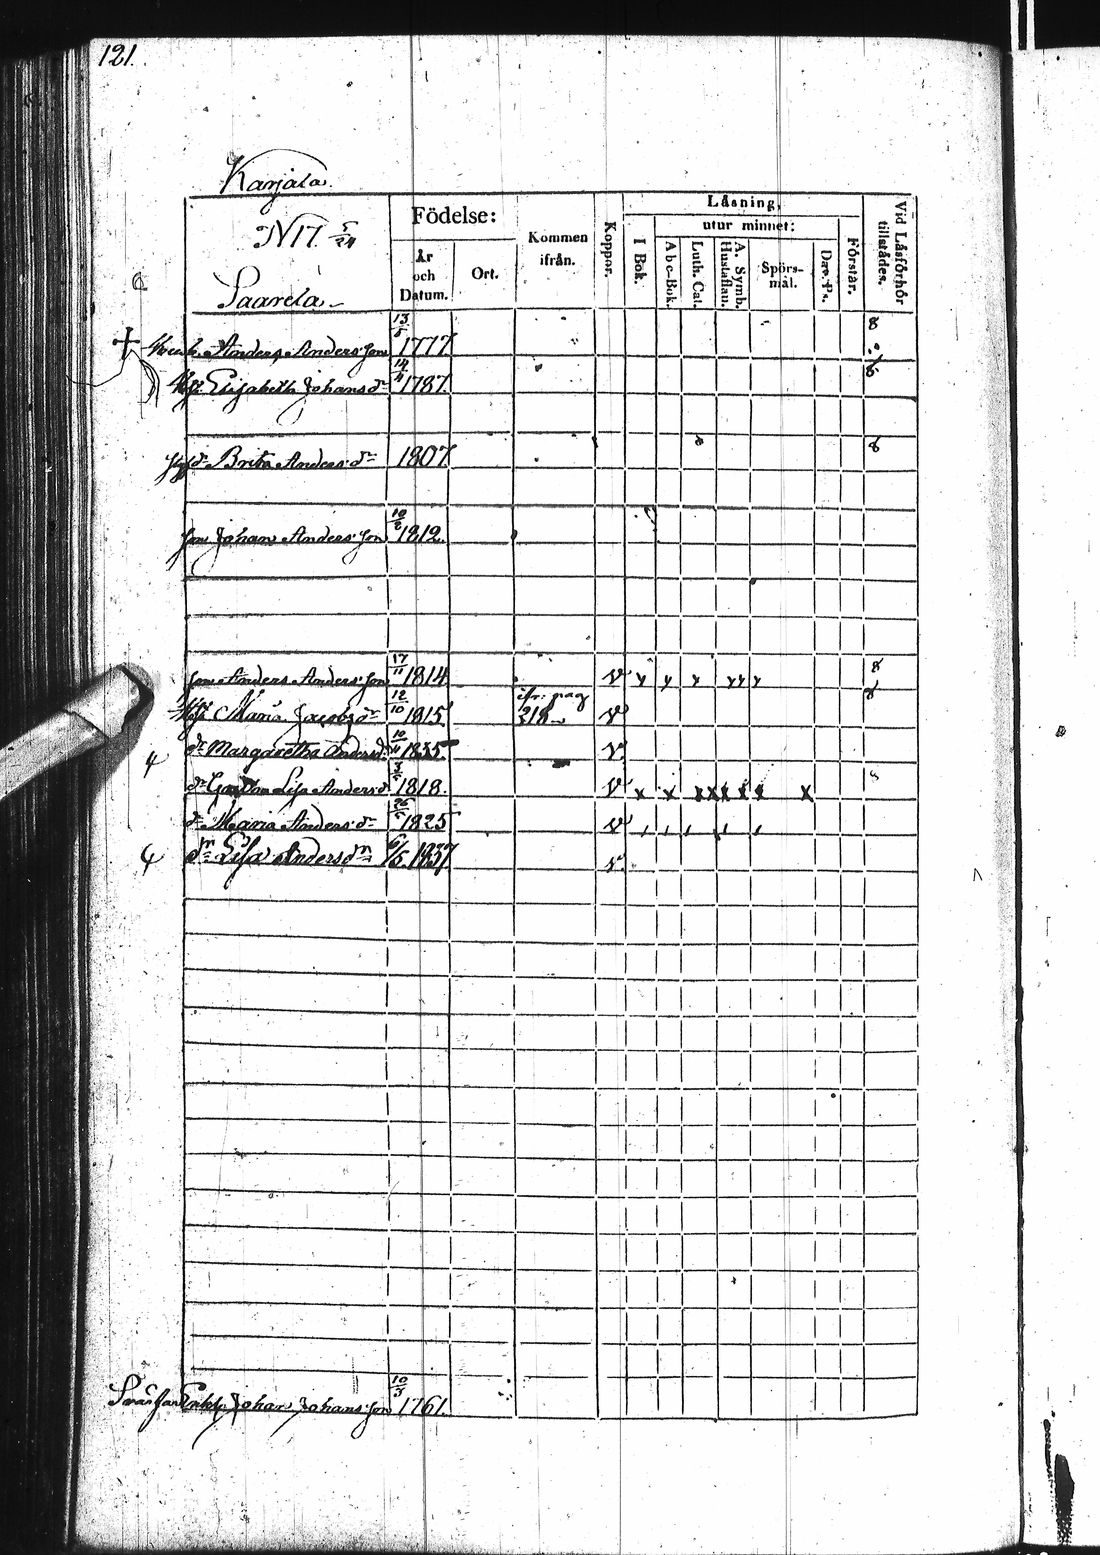 121.
Karjala.
N 17. 5/24
Saarela
Födelse:
År och Datum.
Ort.
Kommen ifrån.
Koppor.
Läsning,
utur minnet:
I Bok.
Abc-Bok.
Luth. Cat.
A. Symb. Hustaflan.
Spörs-mål.
Dav. Ps.
Förstår.
Vid Läsförhör tillstädes.
Anders Andersson 13/5 1777 8
Elisabeth Johansdr 14/11 1787. 8
dr Brita Andersdr 1807 8
son Johan Andersson 10/2 1812.
son Anders Andersson 17/11 1814 v 8
Maria Jacobsdr 12/10 1815 ifr: pag 218 v 8
dr Margaretha Andersdr 10/11 1835 v
dr Lisa Andersdr 1818. v x x x x x x x x
dr Maria Andersdr 26/5 1825 v
dr Lisa Andersdr 6/5 1837 v
Johan Johansson 10/3 1761.